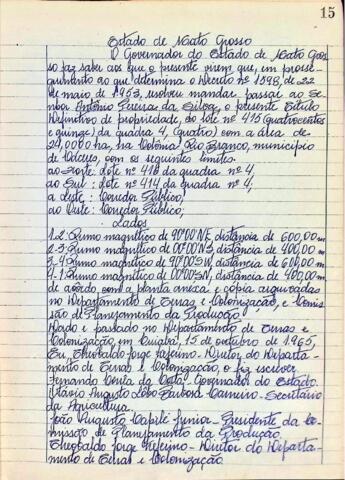 15
Estado de Mato Grosso
O Governador do Estado de Mato Gros
so faz saber aos que o presente virem que, em prosse-
guimento ao que determina o Decreto nº 1598, de 22
de maio de 1953, resolveu mandar passar ao Se-
nhor Antônio Pereira da Silva, o presente Título
Definitivo de propriedade, do lote nº 415 (quatrocentos
e quinze) da quadra 4, (quatro) com a área de
24,0000 ha, na Colônia Rio Branco, município
de Cáceres, com os seguintes limites:
ao Norte: Lote nº 416 da quadra nº 4,
ao Sul: Lote nº 414 da quadra nº 4;
a Leste: Corredor Público;
ao Oeste: Corredor Público;
Lados
1-2: Rumo magnético de 90º00'NE, distância de 600,00m
2-3: Rumo magnético de 00º00'NS, distância de 400,00m
3-4: Rumo magnético de 90º00'SW, distância de 600,00m
4-1: Rumo magnético de 00º00'SN, distância de 400,00m
de acordo com a planta anexa e cópia arquivadas
no Departamento de Terras e Colonização, e Comis-
são de Planejamento da Produção.
Dado e passado no Departamento de Terras e
Colonização, em Cuiabá, 15 de outubro de 1965,
Eu, Theobaldo Jorge - Diretor do Departa-
mento de Terras e Colonização, o fiz escrever
Fernando Corrêa da Costa - Governador do Estado.
Otávio Augusto Lobo Barbosa Carneiro - Secretário
da Agricultura.
João Augusto Capilé Junior - Presidente da Co-
missão de Planejamento da Produção.
Theobaldo Jorge - Diretor do Departa-
mento de Terras e Colonização